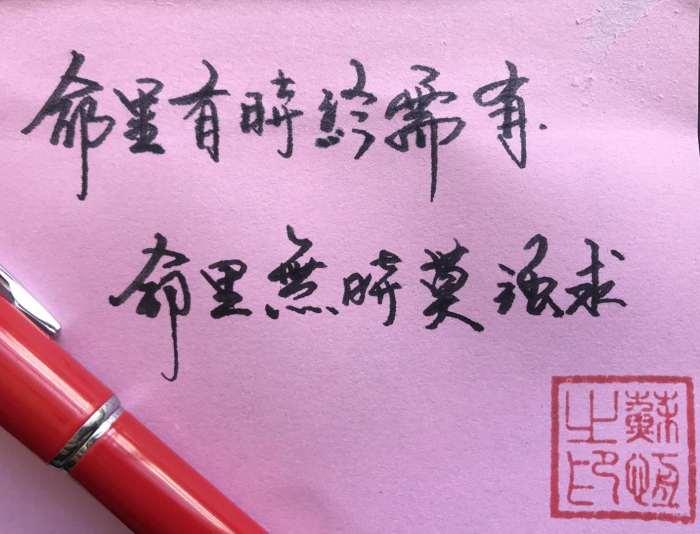 命里有時終需有.
命里無時莫强求
蘇恆之印